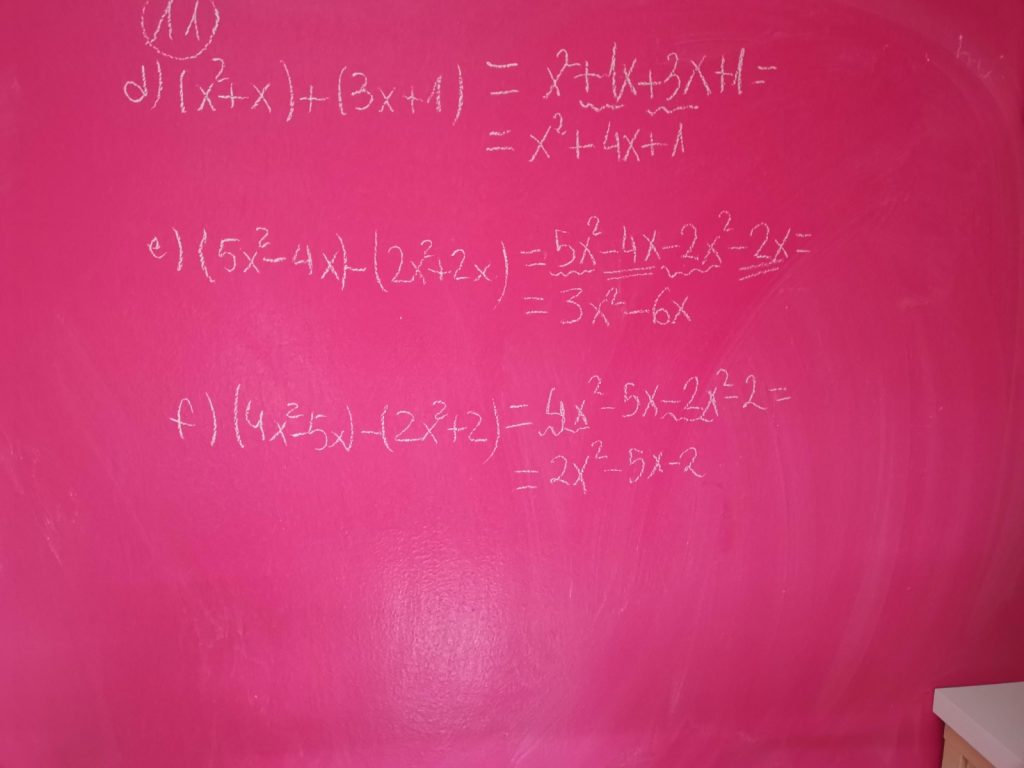 11
d) (x²+x)+(3x+1) = x²+1x+3x+1=
= x²+4x+1
e) (5x²-4x)-(2x²+2x) = 5x²-4x-2x²-2x=
= 3x²-6x
f) (4x²-5x)-(2x²+2) = 4x²-5x-2x²-2=
= 2x²-5x-2